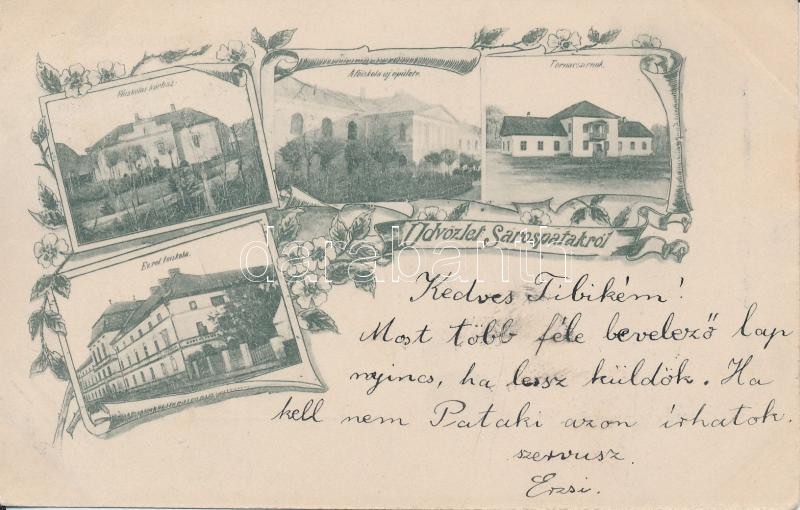 Főiskolai kórház.
A főiskola uj épülete.
Tornacsarnok.
Ev. ref. főiskola.
Üdvözlet Sárospatakról
darabanth
Kedves Tibikém!
Most több féle bevelező lap
nyincs, ha lessz küldök. Ha
kell nem Pataki azon írhatok.
szervusz.
Erzsi.